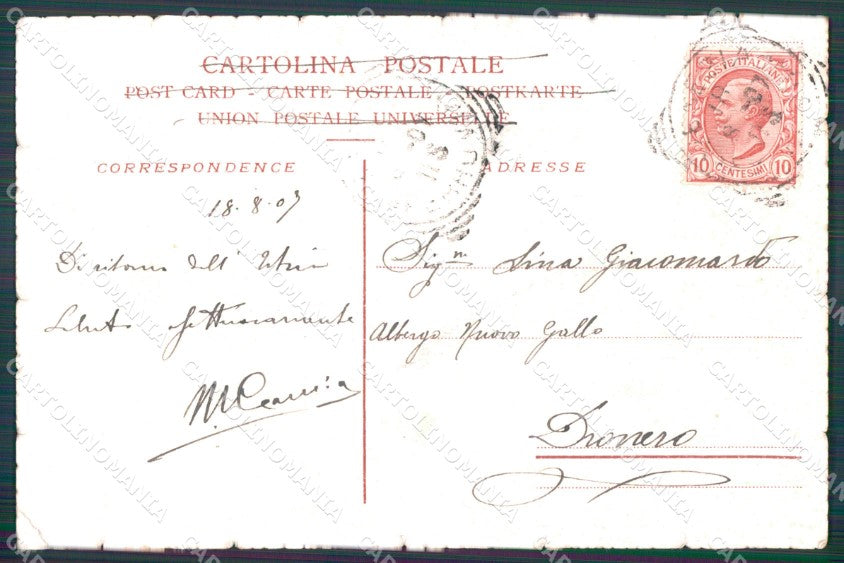 CARTOLINA POSTALE
POST CARD - CARTE POSTALE - POSTKARTE
UNION POSTALE UNIVERSELLE
CORRESPONDENCE
ADRESSE
POSTE ITALIANE
10 CENTESIMI 10
18.8.07
Di ritorno dell'
Saluto affettuosamente
Sig.na Lina Giacomardo
Albergo Nuovo Gallo
Dronero
CARTOLINOMANIA